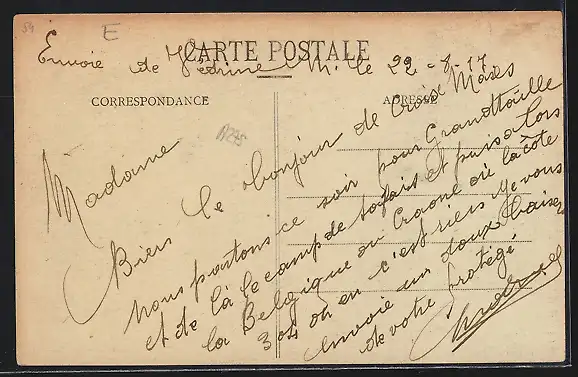 54 E
Envoie de M. le 22 - 8 - 17
CARTE POSTALE
CORRESPONDANCE
ADRESSE
Madame
Biens le bonjour de Croix Mares
nous partons ce soir pour
et de là le camp de et puis alors
la Belgique ou Craone où la côte
304 on en c'est riens Je vous
envoie un doux baiser
de votre protégé